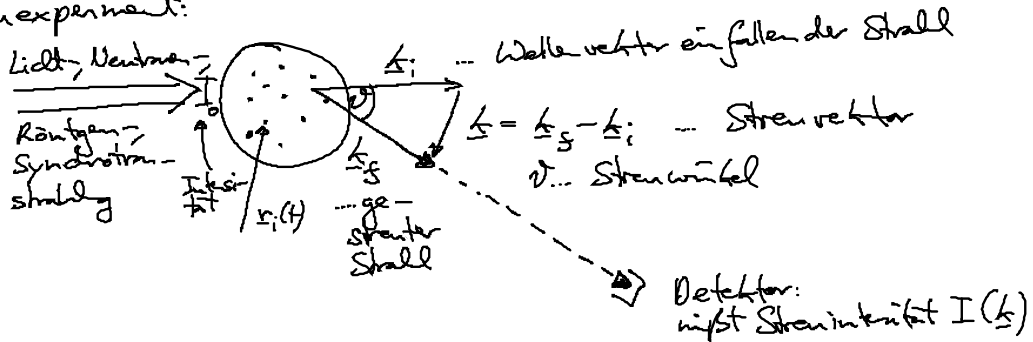 nexperiment:
Licht-, Neutronen-,
Röntgen-,
Synchrotron-
strahlg
I₀
Intensi-
tät
r̲ᵢ(t)
k̲ᵢ ... Wellenvektor einfallender Strahl
ϑ
k̲ = k̲_f - k̲ᵢ ... Streuvektor
ϑ... Streuwinkel
k̲_f
.... ge-
streuter
Strahl
Detektor:
mißt Streuintensität I(k̲)